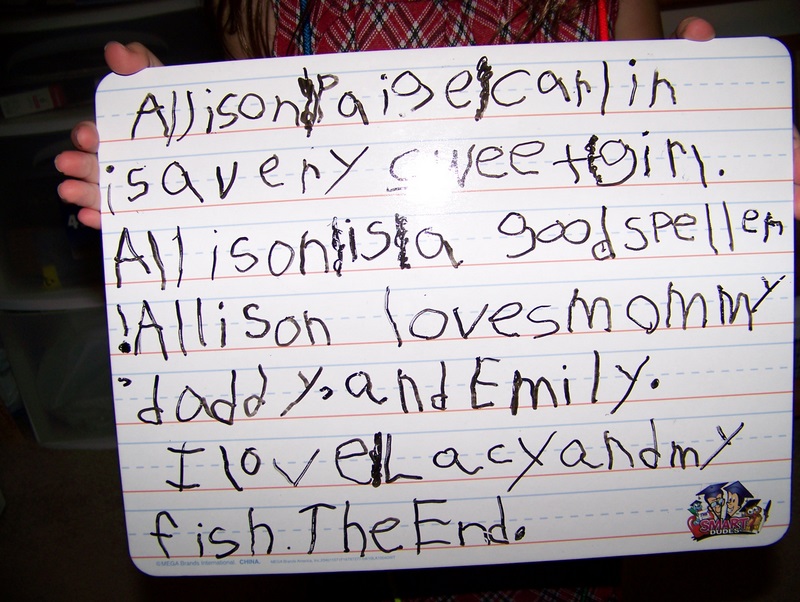 Allison Paige Carlin
is a very sweet girl.
Allison is a good speller
! Allison loves mommy
, daddy, and Emily.
I love Lacy and my
fish. The End.
THE SMART DUDES
©MEGA Brands International CHINA.